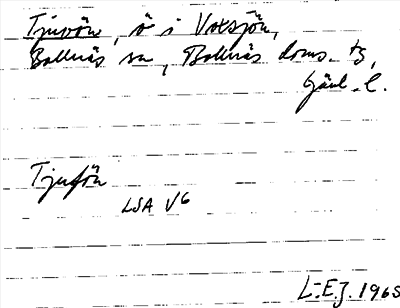 Tjuvön, ö i Voxsjön,
Bollnäs sn, Bollnäs doms. tg,
Gävl. l.
Tjufön
LSA V6
L.E.J. 1965